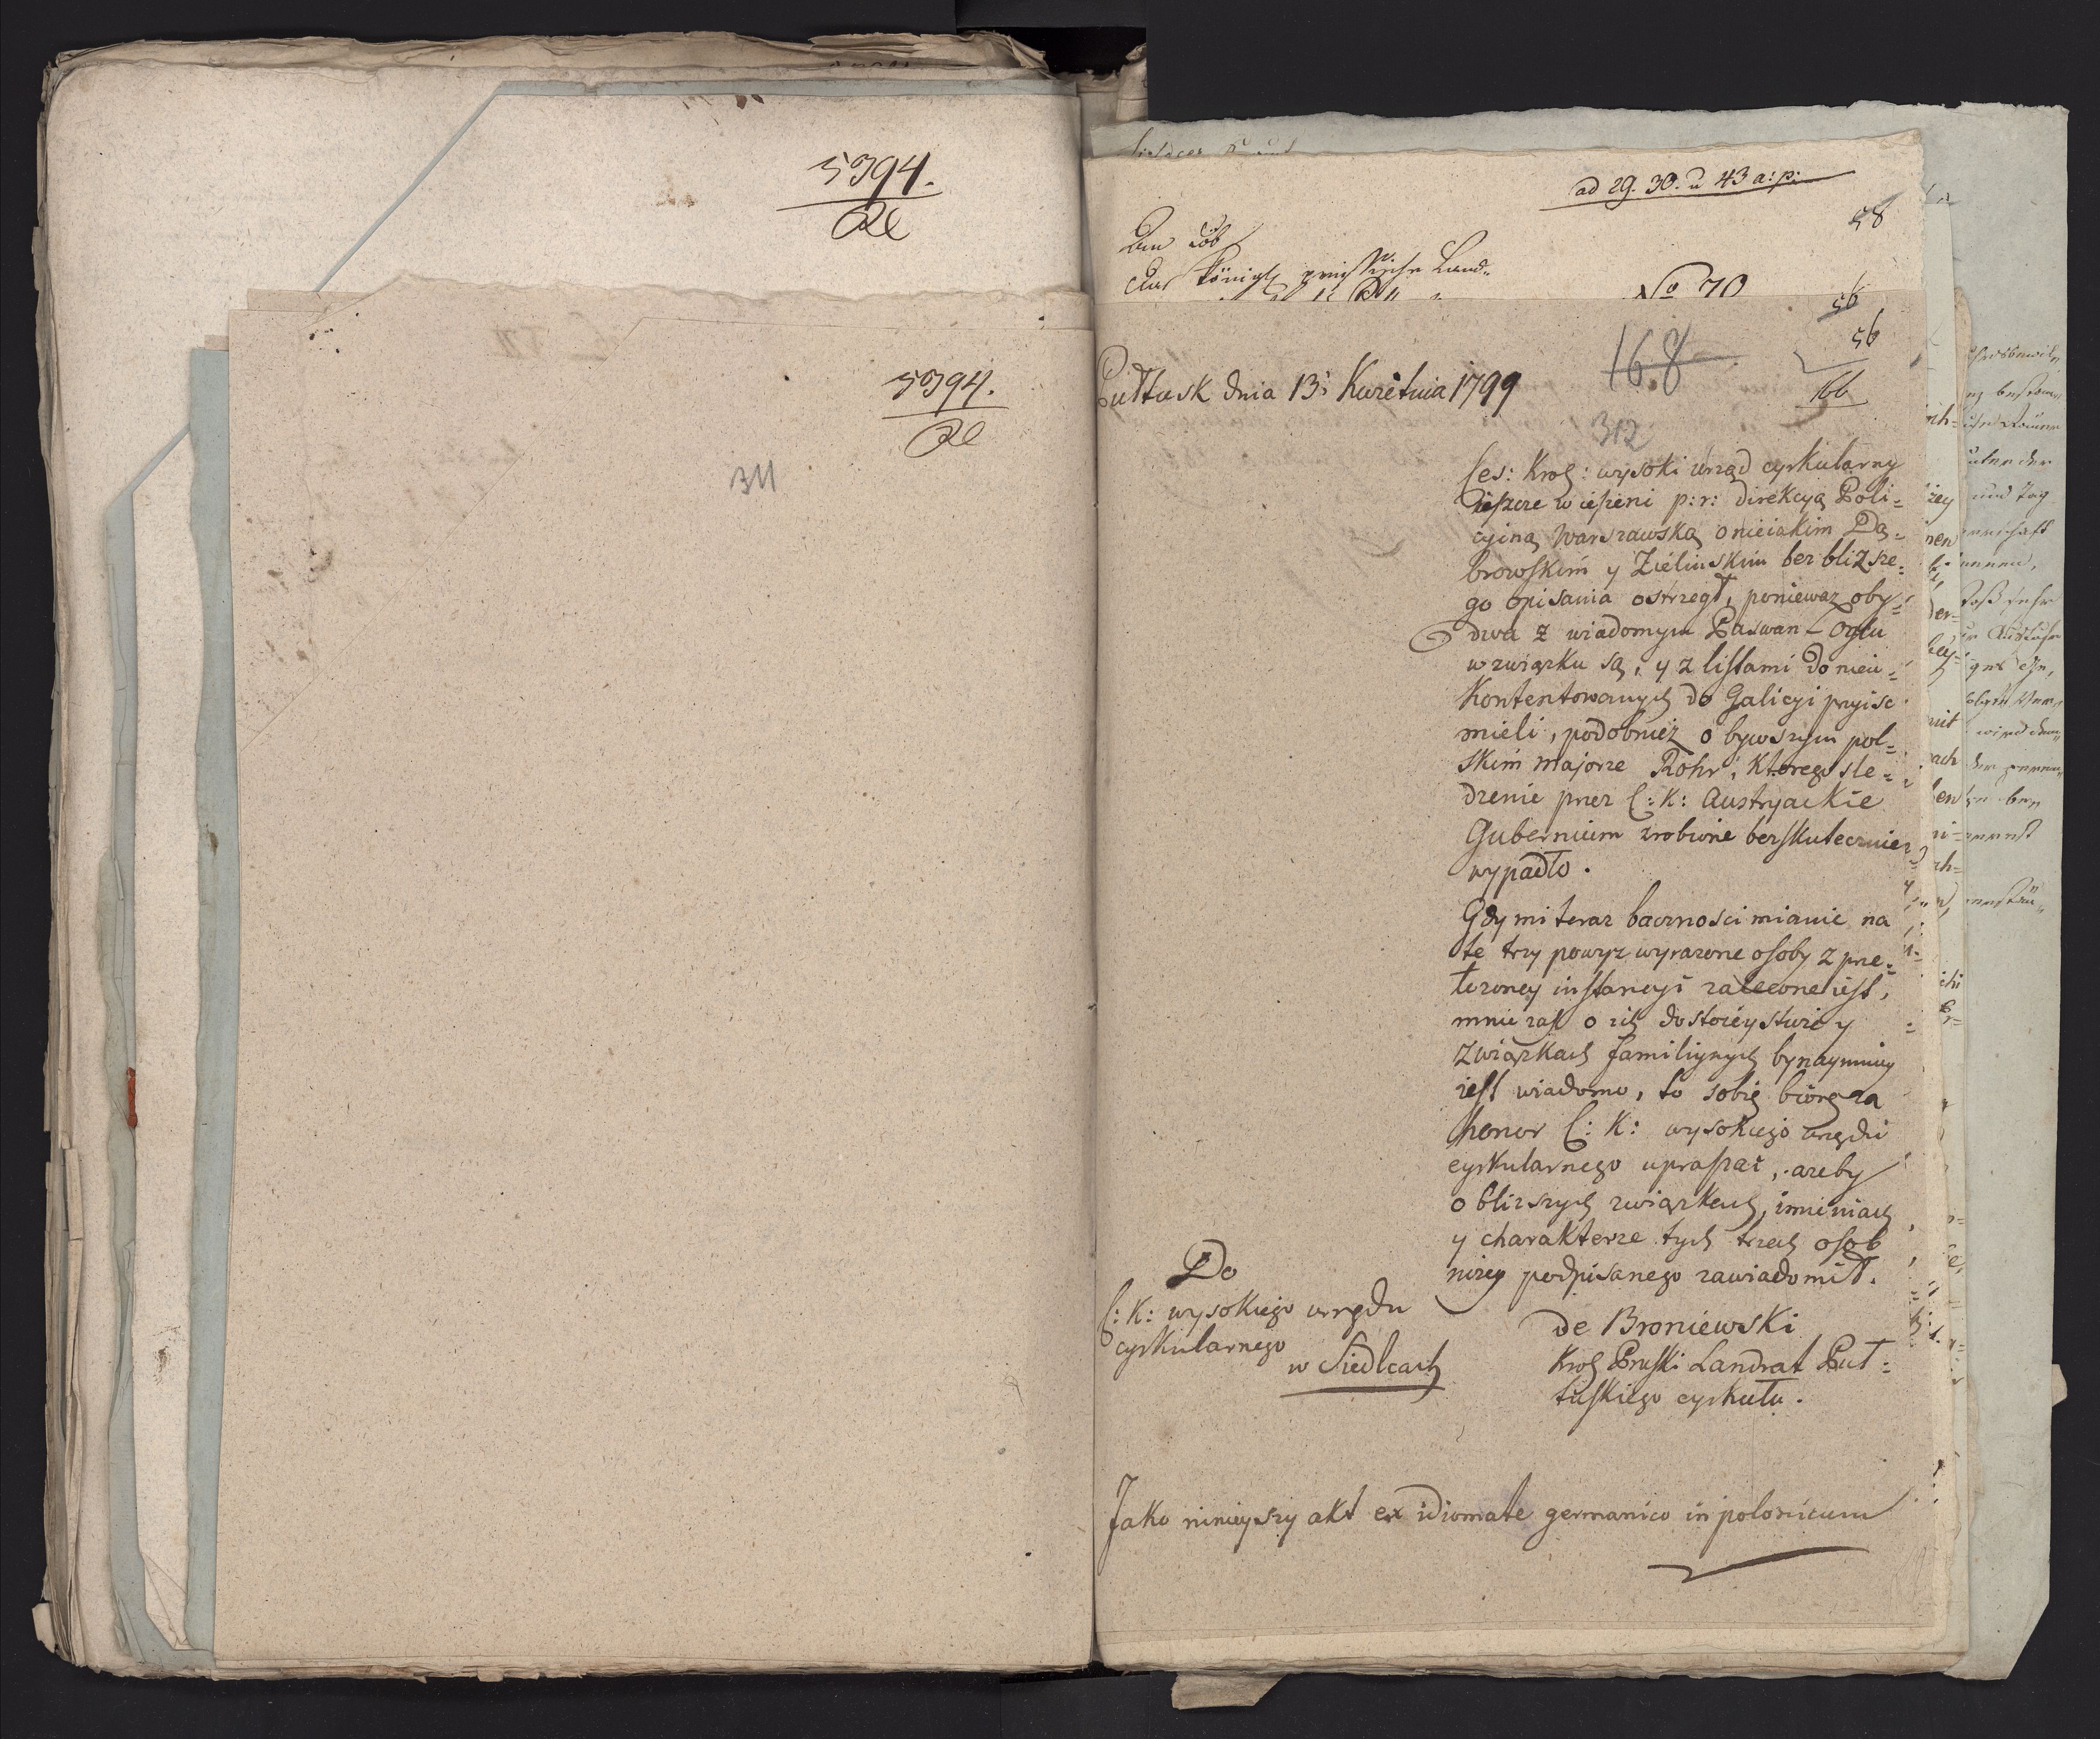 5394.
5394.
311
ad 29. 30. u 43 a: p:
58
No 70
56
56
168
166
Pułtusk dnia 13: Kwietnia 1799
312
Ces: Krol: wysoki urząd cyrkularny
ieszcze w iesieni p: r: direkcyą Poli=
cyiną Warszawską o nieiakim Dą=
browskim y Zielinskim bez bliższe=
go opisania ostrzegł, poniewaz oby=
dwa z wiadomym Paswan-Oglu
w związku są, y z listami do nieu=
kontentowanych do Galicyi przyisc
mieli, podobnież o bywszym pol=
skim majorze Rohr, ktorego sle=
dzenie przez C: K: Austryackie
Gubernium zrobione bezskutecznie
wypadło.
Gdy mi teraz bacznosci mianie na
te trzy powyz wyrazone osoby z prze=
łozoney instancyi zalecone iest,
mnie zaś o ich dostoieystwie y
związkach familiynych bynaymniey
iest wiadomo, to sobie biorę za
honor C: K: wysokiego urzędu
cyrkularnego upraszać, azeby
o blizszych związkach, imieniach
y charakterze tych trzech osob
nizey podpisanego zawiadomił.
de Broniewski
Krol Pruski Landrat Puł=
tuskiego cyrkułu.
Do
C: K: wysokiego urzędu
cyrkularnego
w Siedlcach
Jako ninieyszy akt ex idiomate germanico in polonicum